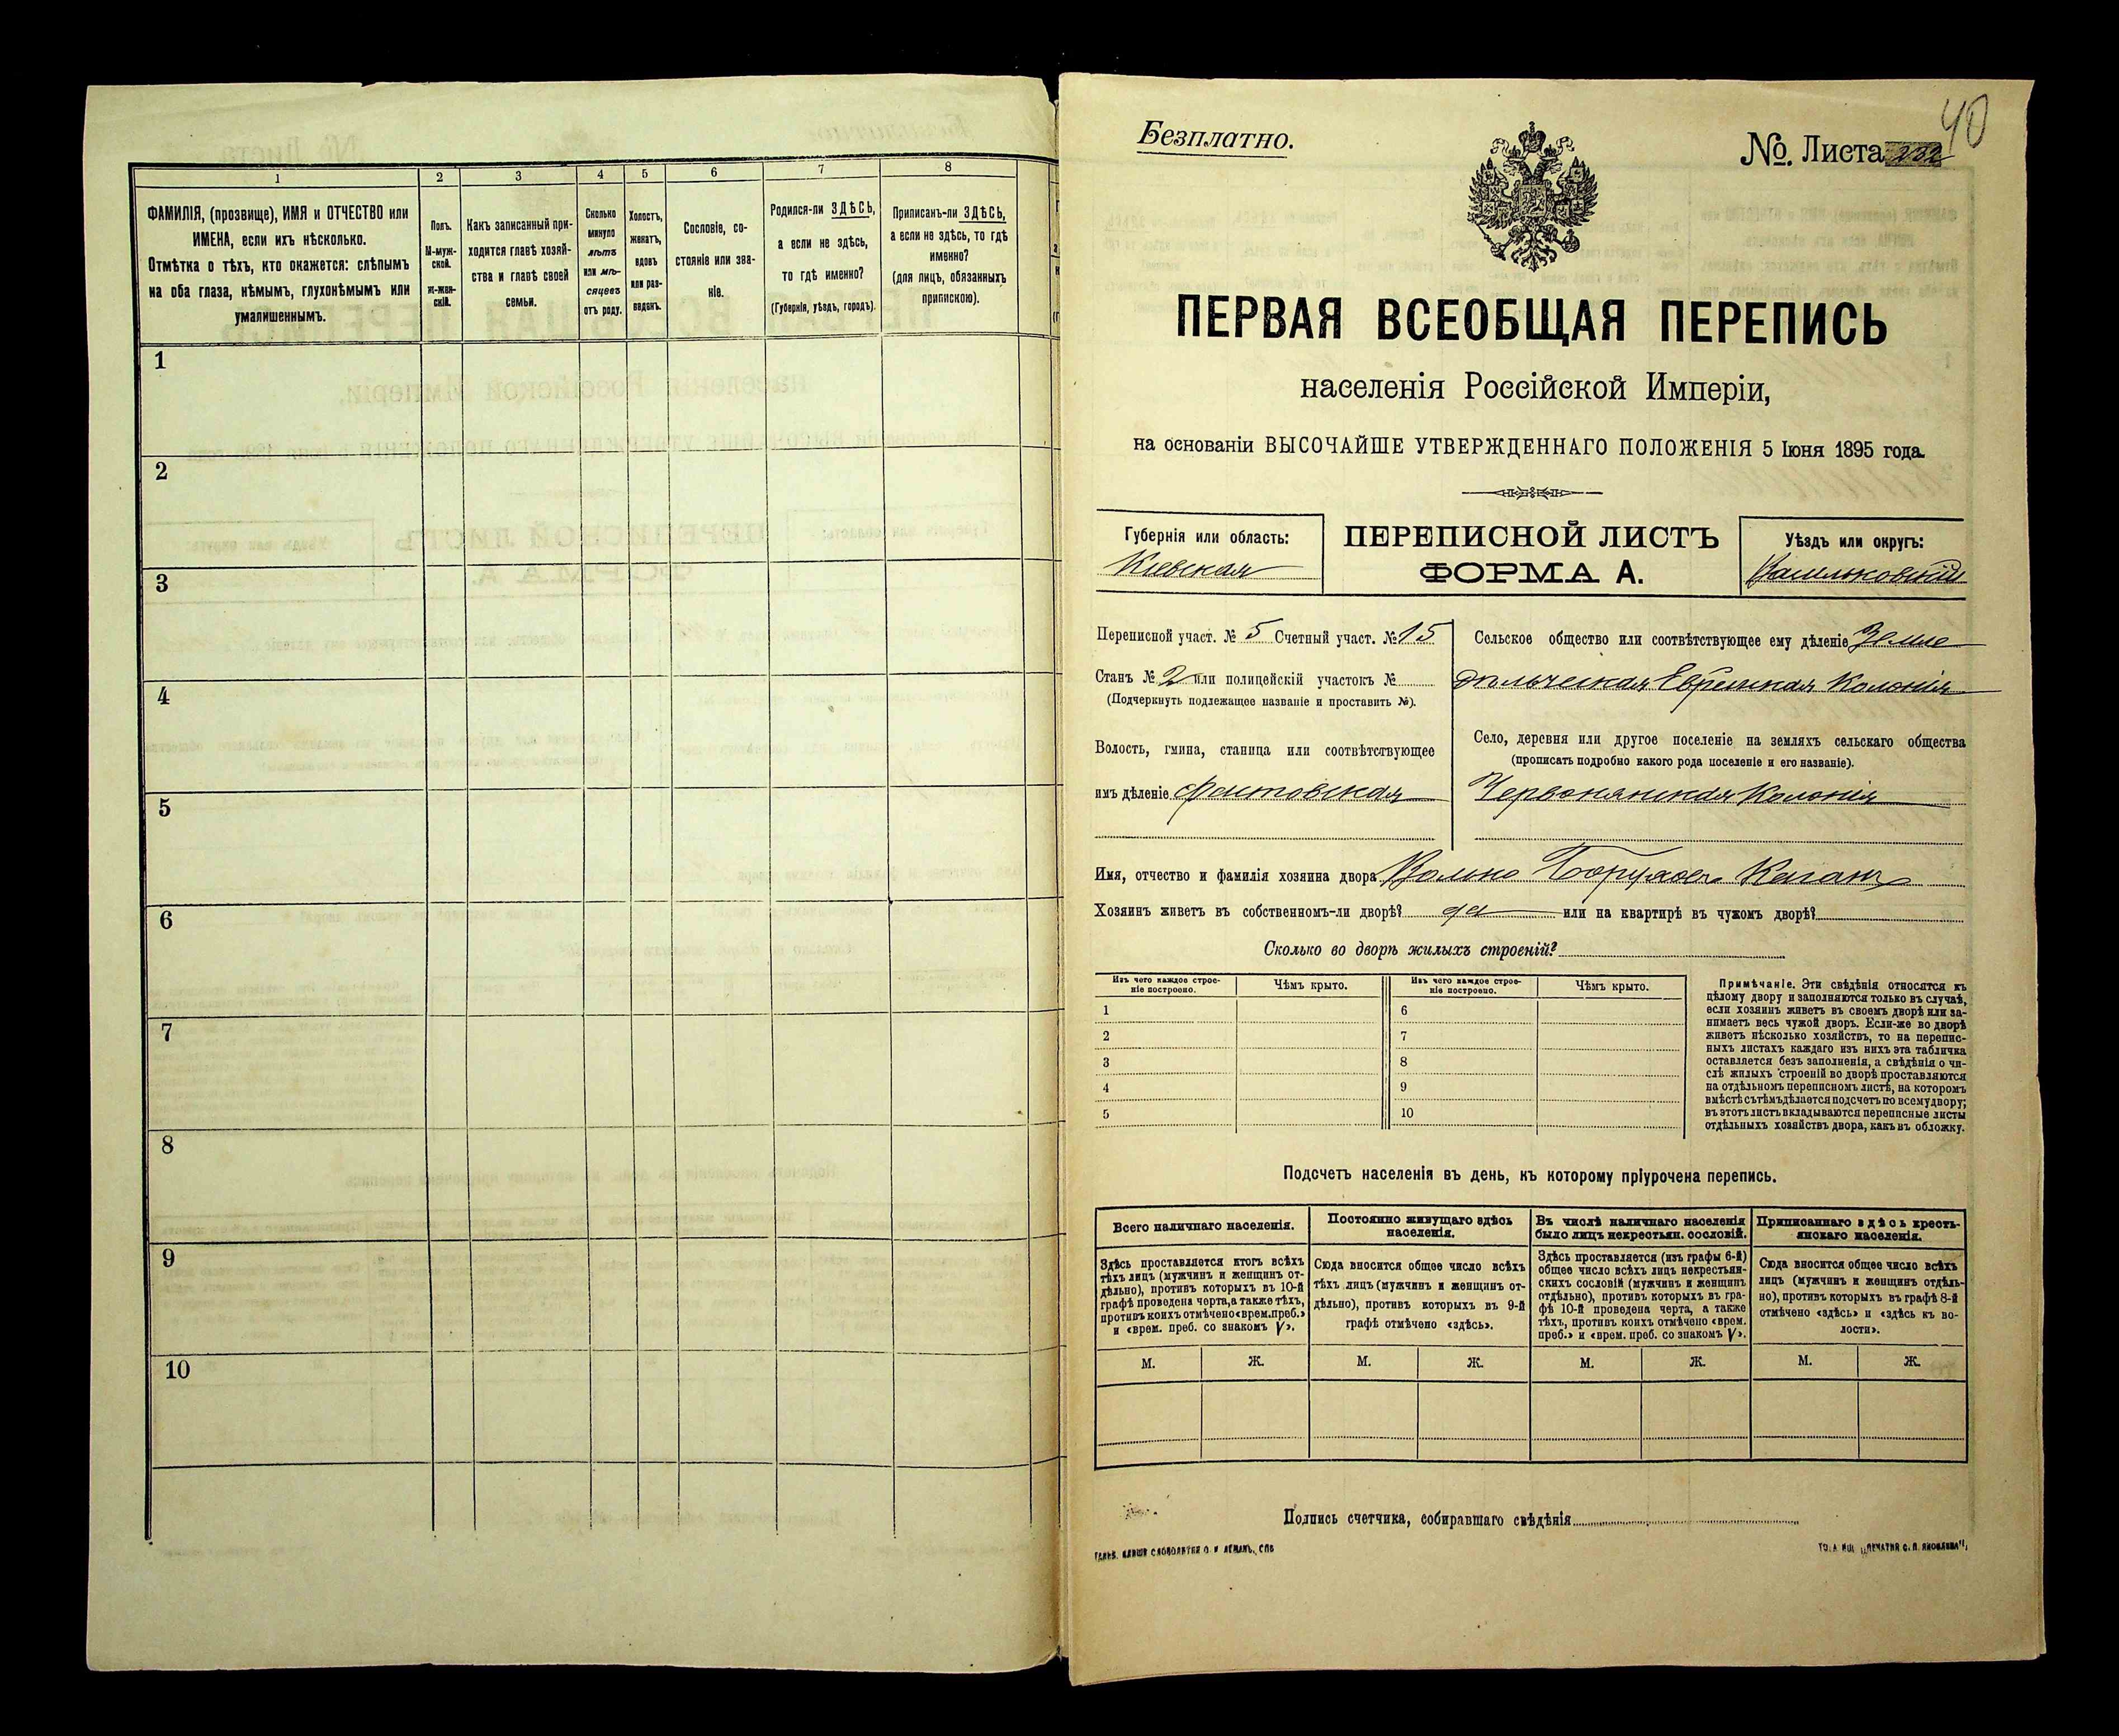 1
2
3
4
5
6
7
8
ФАМИЛІЯ, (прозвище), ИМЯ и ОТЧЕСТВО или
ИМЕНА, если ихъ нѣсколько.
Отмѣтка о тѣхъ, кто окажется: слѣпымъ
на оба глаза, нѣмымъ, глухонѣмымъ или
умалишеннымъ.
Полъ.
М-муж-
ской.
Ж-жен-
скій.
Какъ записанный при-
ходится главѣ хозяй-
ства и главѣ своей
семьи.
Сколько
минуло
лѣтъ
или мѣ-
сяцевъ
отъ роду.
Холостъ,
женатъ,
вдовъ
или раз-
веденъ.
Сословіе, со-
стояніе или зва-
ніе.
Родился-ли ЗДѢСЬ,
а если не здѣсь,
то гдѣ именно?
(Губернія, уѣздъ, городъ).
Приписанъ-ли ЗДѢСЬ,
а если не здѣсь, то гдѣ
именно?
(для лицъ, обязанныхъ
припискою).
1
2
3
4
5
6
7
8
9
10
40
Безплатно.
№. Листа 232
ПЕРВАЯ ВСЕОБЩАЯ ПЕРЕПИСЬ
населенія Россійской Имперіи,
на основаніи ВЫСОЧАЙШЕ УТВЕРЖДЕННАГО ПОЛОЖЕНІЯ 5 Іюня 1895 года.
Губернія или область:
Кіевская
ПЕРЕПИСНОЙ ЛИСТЪ
ФОРМА А.
Уѣздъ или округъ:
Васильковскій
Переписной участ. № 5 Счетный участ. № 15
Станъ № 2 или полицейскій участокъ №
(Подчеркнуть подлежащее названіе и проставить №).
Волость, гмина, станица или соотвѣтствующее
имъ дѣленіе Фастовская
Сельское общество или соотвѣтствующее ему дѣленіе Земле
дѣльческая Еврейская Колонія
Село, деревня или другое поселеніе на земляхъ сельскаго общества
(прописать подробно какого рода поселеніе и его названіе).
Червонянская Колонія
Имя, отчество и фамилія хозяина двора Волько Боруховъ Каганъ
Хозяинъ живетъ въ собственномъ-ли дворѣ? да или на квартирѣ въ чужомъ дворѣ?
Сколько во дворѣ жилыхъ строеній?
Изъ чего каждое строе-
ніе построено.
Чѣмъ крыто.
Изъ чего каждое строе-
ніе построено.
Чѣмъ крыто.
1
2
3
4
5
6
7
8
9
10
Примѣчаніе. Эти свѣдѣнія относятся къ
цѣлому двору и заполняются только въ случаѣ,
если хозяинъ живетъ въ своемъ дворѣ или за-
нимаетъ весь чужой дворъ. Если-же во дворѣ
живетъ нѣсколько хозяйствъ, то на перепис-
ныхъ листахъ каждаго изъ нихъ эта табличка
оставляется безъ заполненія, а свѣдѣнія о чи-
слѣ жилыхъ строеній во дворѣ проставляются
на отдѣльномъ переписномъ листѣ, на которомъ
вмѣстѣ съ тѣмъ дѣлается подсчетъ по всему двору;
въ этотъ листъ вкладываются переписные листы
отдѣльныхъ хозяйствъ двора, какъ въ обложку.
Подсчетъ населенія въ день, къ которому пріурочена перепись.
Всего наличнаго населенія.
Постоянно живущаго здѣсь
населенія.
Въ числѣ наличнаго населенія
было лицъ некрестьян. сословій.
Приписаннаго здѣсь кресть-
янскаго населенія.
Здѣсь проставляется итогъ всѣхъ
тѣхъ лицъ (мужчинъ и женщинъ от-
дѣльно), противъ которыхъ въ 10-й
графѣ проведена черта, а также тѣхъ,
противъ коихъ отмѣчено «врем. преб.»
и «врем. преб. со знакомъ V».
Сюда вносится общее число всѣхъ
тѣхъ лицъ (мужчинъ и женщинъ от-
дѣльно), противъ которыхъ въ 9-й
графѣ отмѣчено «здѣсь».
Здѣсь проставляется (изъ графы 6-й)
общее число всѣхъ лицъ некрестьян-
скихъ сословій (мужчинъ и женщинъ
отдѣльно), противъ которыхъ въ гра-
фѣ 10-й проведена черта, а также
тѣхъ, противъ коихъ отмѣчено «врем.
преб.» и «врем. преб. со знакомъ V».
Сюда вносится общее число всѣхъ
лицъ (мужчинъ и женщинъ отдѣль-
но), противъ которыхъ въ графѣ 8-й
отмѣчено «здѣсь» и «здѣсь къ во-
лости».
М.
Ж.
М.
Ж.
М.
Ж.
М.
Ж.
Подпись счетчика, собиравшаго свѣдѣнія